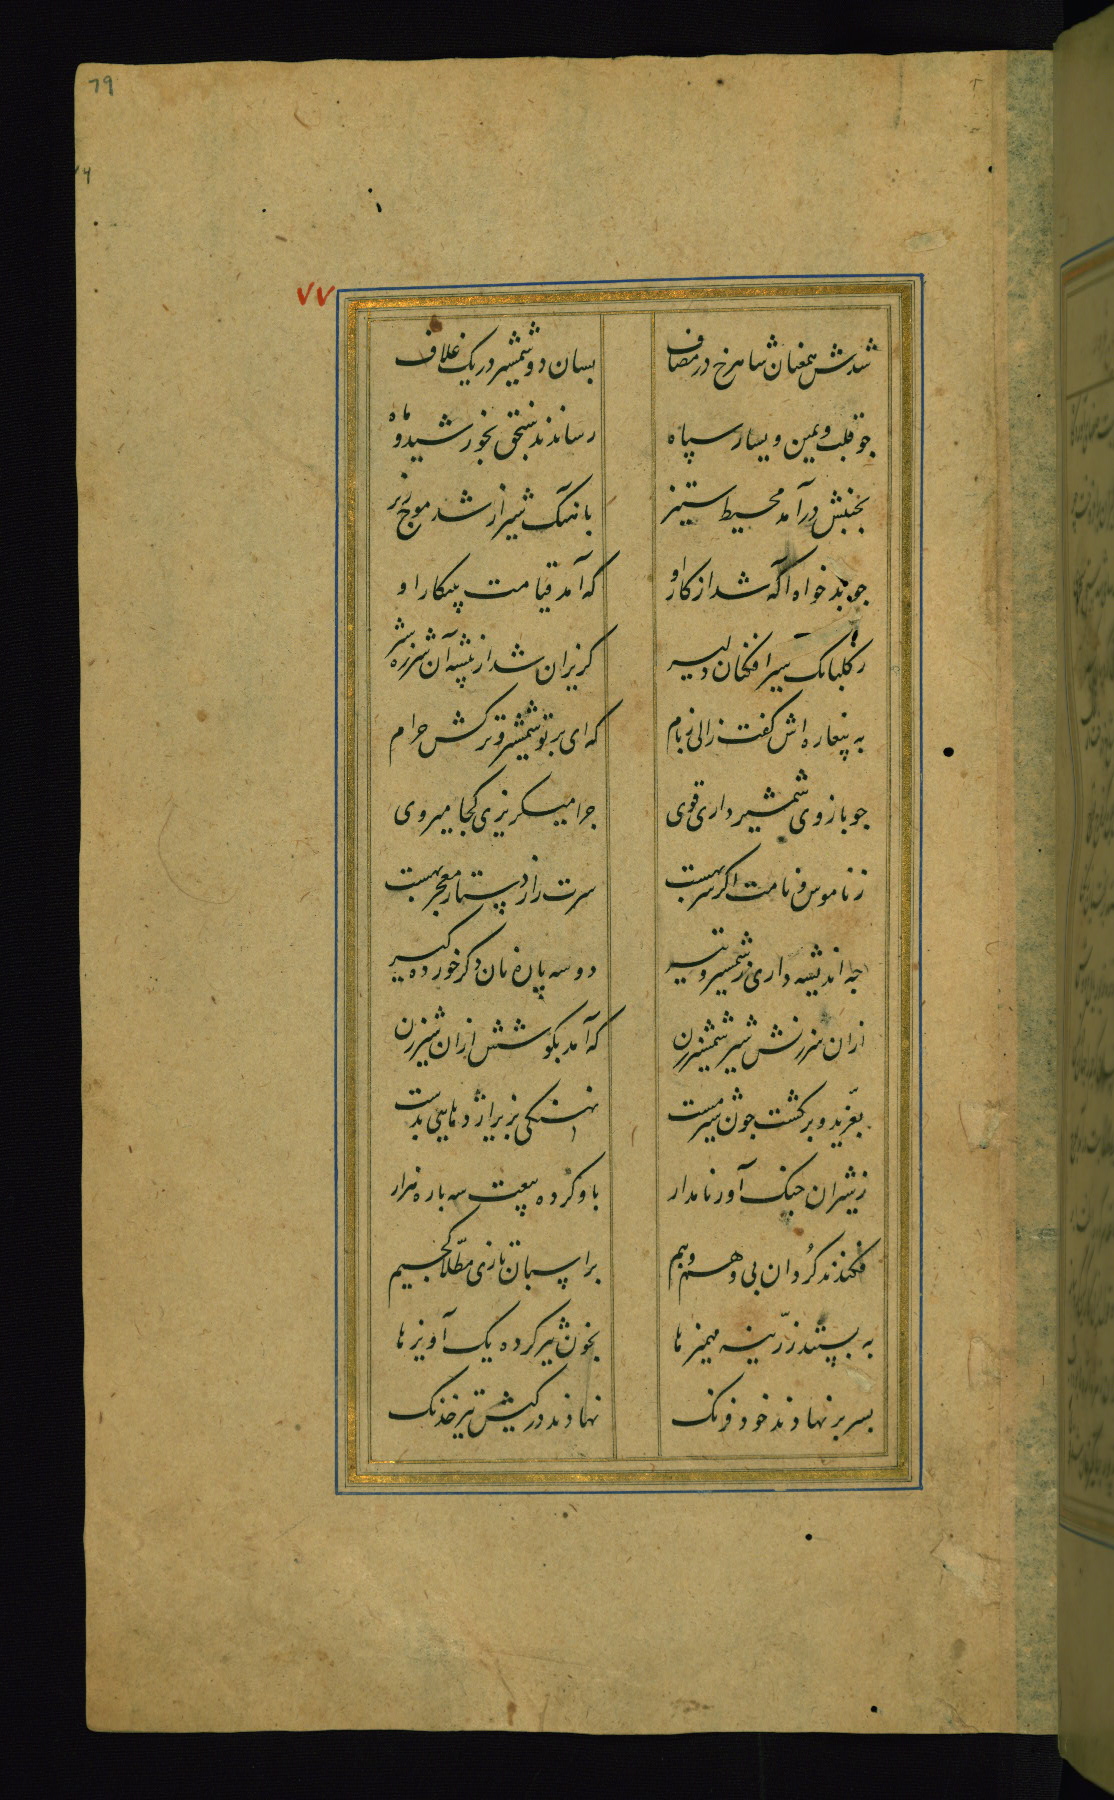 79
٧٧
شدش همعنان شاهرخ در مصاف
بسان دو شمشیر در یک غلاف
جو قلب و یمین و یسار سپاه
رساندند سنجق بخورشید و ماه
بجنبش درآمد محیط ستیز
باهنک شیراز شد موج ریز
جو بدخواه آکه شد از کار او
که آمد قیامت پیکار او
ز کلبانک شیرافکنان دلیر
کریزان شد از بیشه آن شرزه شیر
به پیغاره اش کفت زالی ز بام
که ای بر تو شمشیر و ترکش حرام
جو بازوی شمشیر داری قوی
جرا میکریزی کجا میروی
ز ناموس و نامت اکر سر بهست
سرت را ز دستار معجر بهست
جه اندیشه داری ز شمشیر و تیر
دو سه پاره نان دکر خورده کیر
ازان سرزنش شیر شمشیرزن
که آمد بکوشش ازان شیرزن
بغرید و برکشت جون شیر مست
نهنکی بزیر اژدهایی بدست
ز شیران جنک آور نامدار
باو کرده بیعت سه باره هزار
فکندند کردان بی وهم و بیم
بر اسبان تازی مطلا کجیم
به بستند زرینه مهمیزها
بخون تیز کرده یک آویزها
بسر بر نهادند خود فرنک
نهادند در کیش تیر خدنک